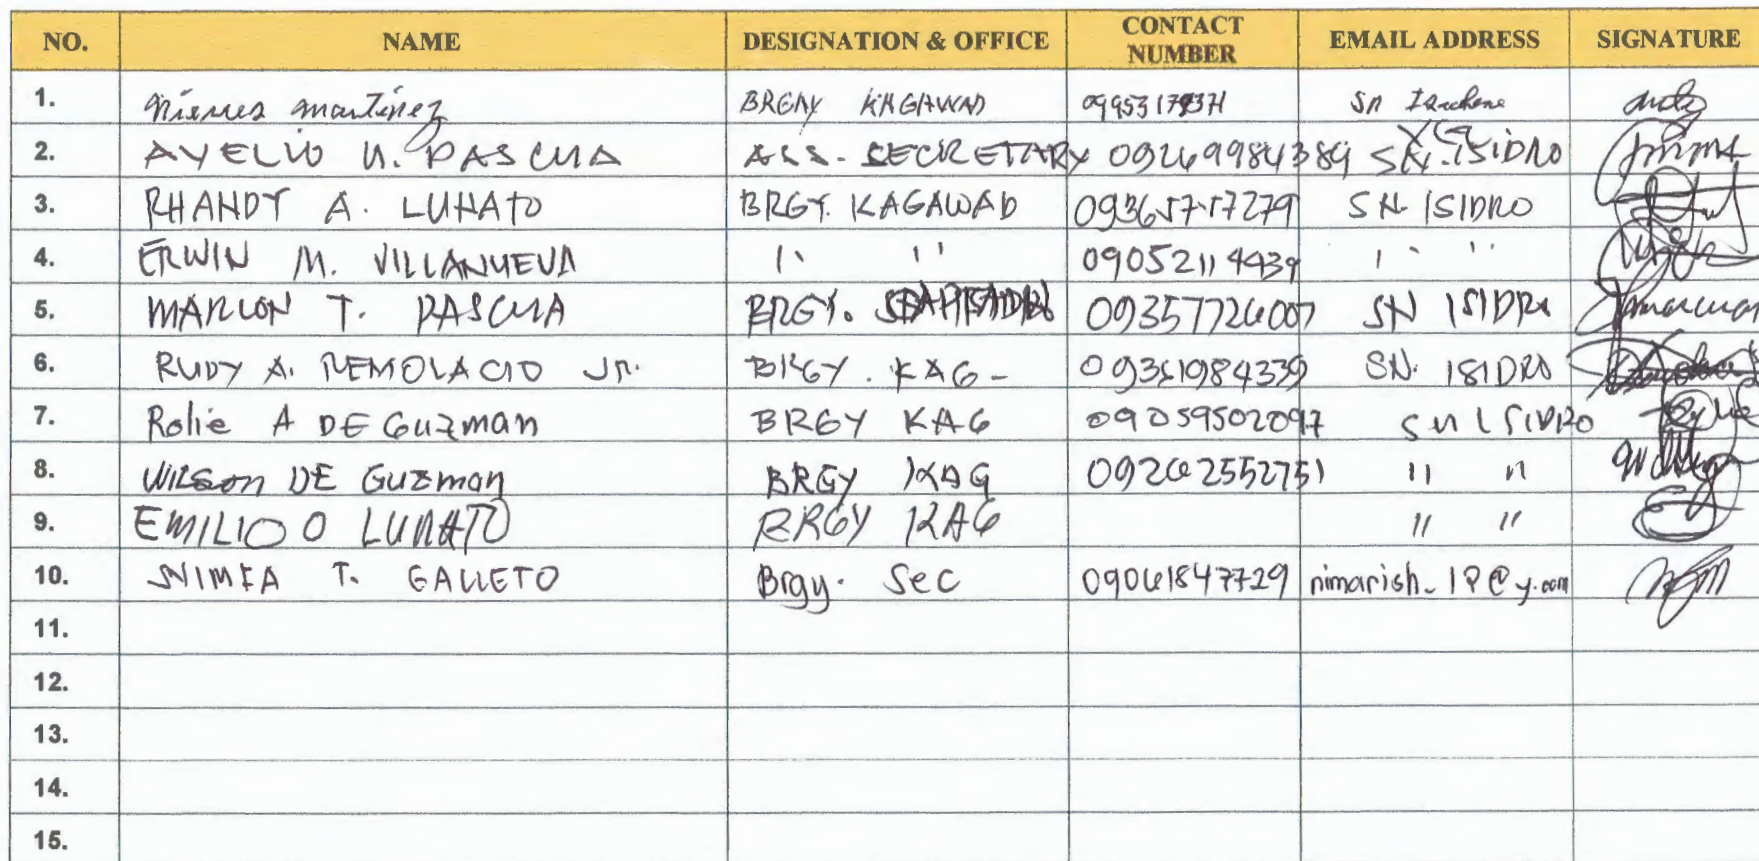 NO. NAME DESIGNATION & OFFICE CONTACT NUMBER EMAIL ADDRESS SIGNATURE
1. martinez BRGAY KAGAWAD SN
2. AYELIO N. PASCUA ASS. SECRETARY 09269984389 SN. ISIDRO
3. RHANDY A. LUNATO BRGY. KAGAWAD 09365757279 SN ISIDRO
4. ERWIN M. VILLANUEVA " " 09052114439 " "
5. MARLON T. PASCUA BRGY. 09357726007 SN ISIDRO
6. RUDY A. REMOLACIO Jr. BRGY. KAG- 09361984339 SN. ISIDRO
7. Rolie A DE Guzman BRGY KAG 09059502097 SN ISIDRO
8. Wilson DE Guzman BRGY KAG 09262552751 " "
9. EMILIO O LUNATO BRGY KAG " "
10. NIMFA T. GALLETO Brgy. Sec 09061847729 nimarish_18@y.com
11.
12.
13.
14.
15.